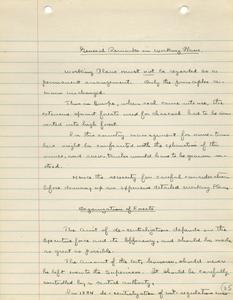 General Remarks on Working Plans.
Working Plans must not be regarded as a
permanent arrangement. Only the principles re-
main unchanged.
Thus in Europe, when coal came into use, the
extensive sprout forests used for charcoal had to be con-
verted into high forest.
In this country management for mine-timbers
might be confronted with the exhaustion of the
mines, and saw-timber would have to be grown in-
stead.
Hence the necessity for careful consideration
before drawing up an expensive detailed working Plan.
Organization of Forests
The Unit of decentralization depends on the
Executive force and its efficiency, and should be made
as great as possible.
The Amount of the cut, however, should never
be left to the Supervisor. It should be carefully
controlled by a central authority.
In 1874 decentralization of cut-regulations was